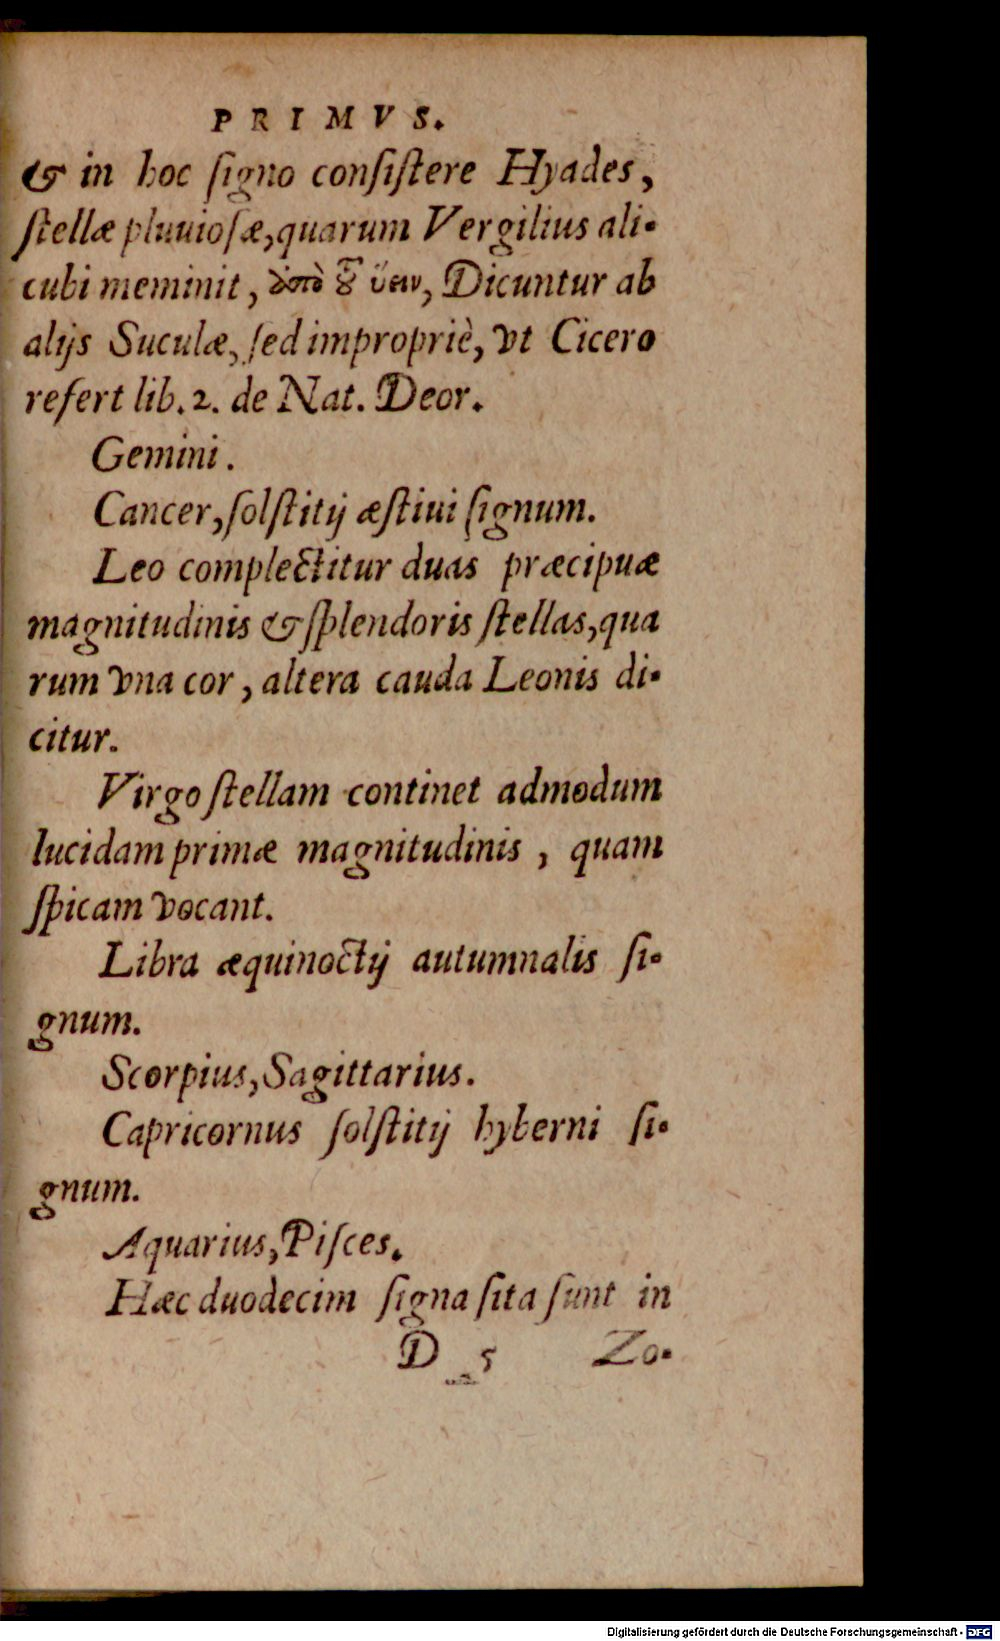 PRIMVS.
& in hoc ſigno conſiſtere Hyades,
ſtellæ pluuioſæ, quarum Vergilius ali-
cubi meminit, ἀπὸ τοῦ ὕειν, Dicuntur ab
alijs Suculæ, ſed impropriè, vt Cicero
refert lib. 2. de Nat. Deor.
Gemini.
Cancer, ſolſtitij æſtiui ſignum.
Leo complectitur duas præcipuæ
magnitudinis & ſplendoris ſtellas, qua
rum vna cor, altera cauda Leonis di-
citur.
Virgo ſtellam continet admodum
lucidam primæ magnitudinis, quam
ſpicam vocant.
Libra æquinoctij autumnalis ſi-
gnum.
Scorpius, Sagittarius.
Capricornus ſolſtitij hyberni ſi-
gnum.
Aquarius, Piſces.
Hæc duodecim ſigna ſita ſunt in
D 5 Zo-
Digitalisierung gefördert durch die Deutsche Forschungsgemeinschaft - DFG